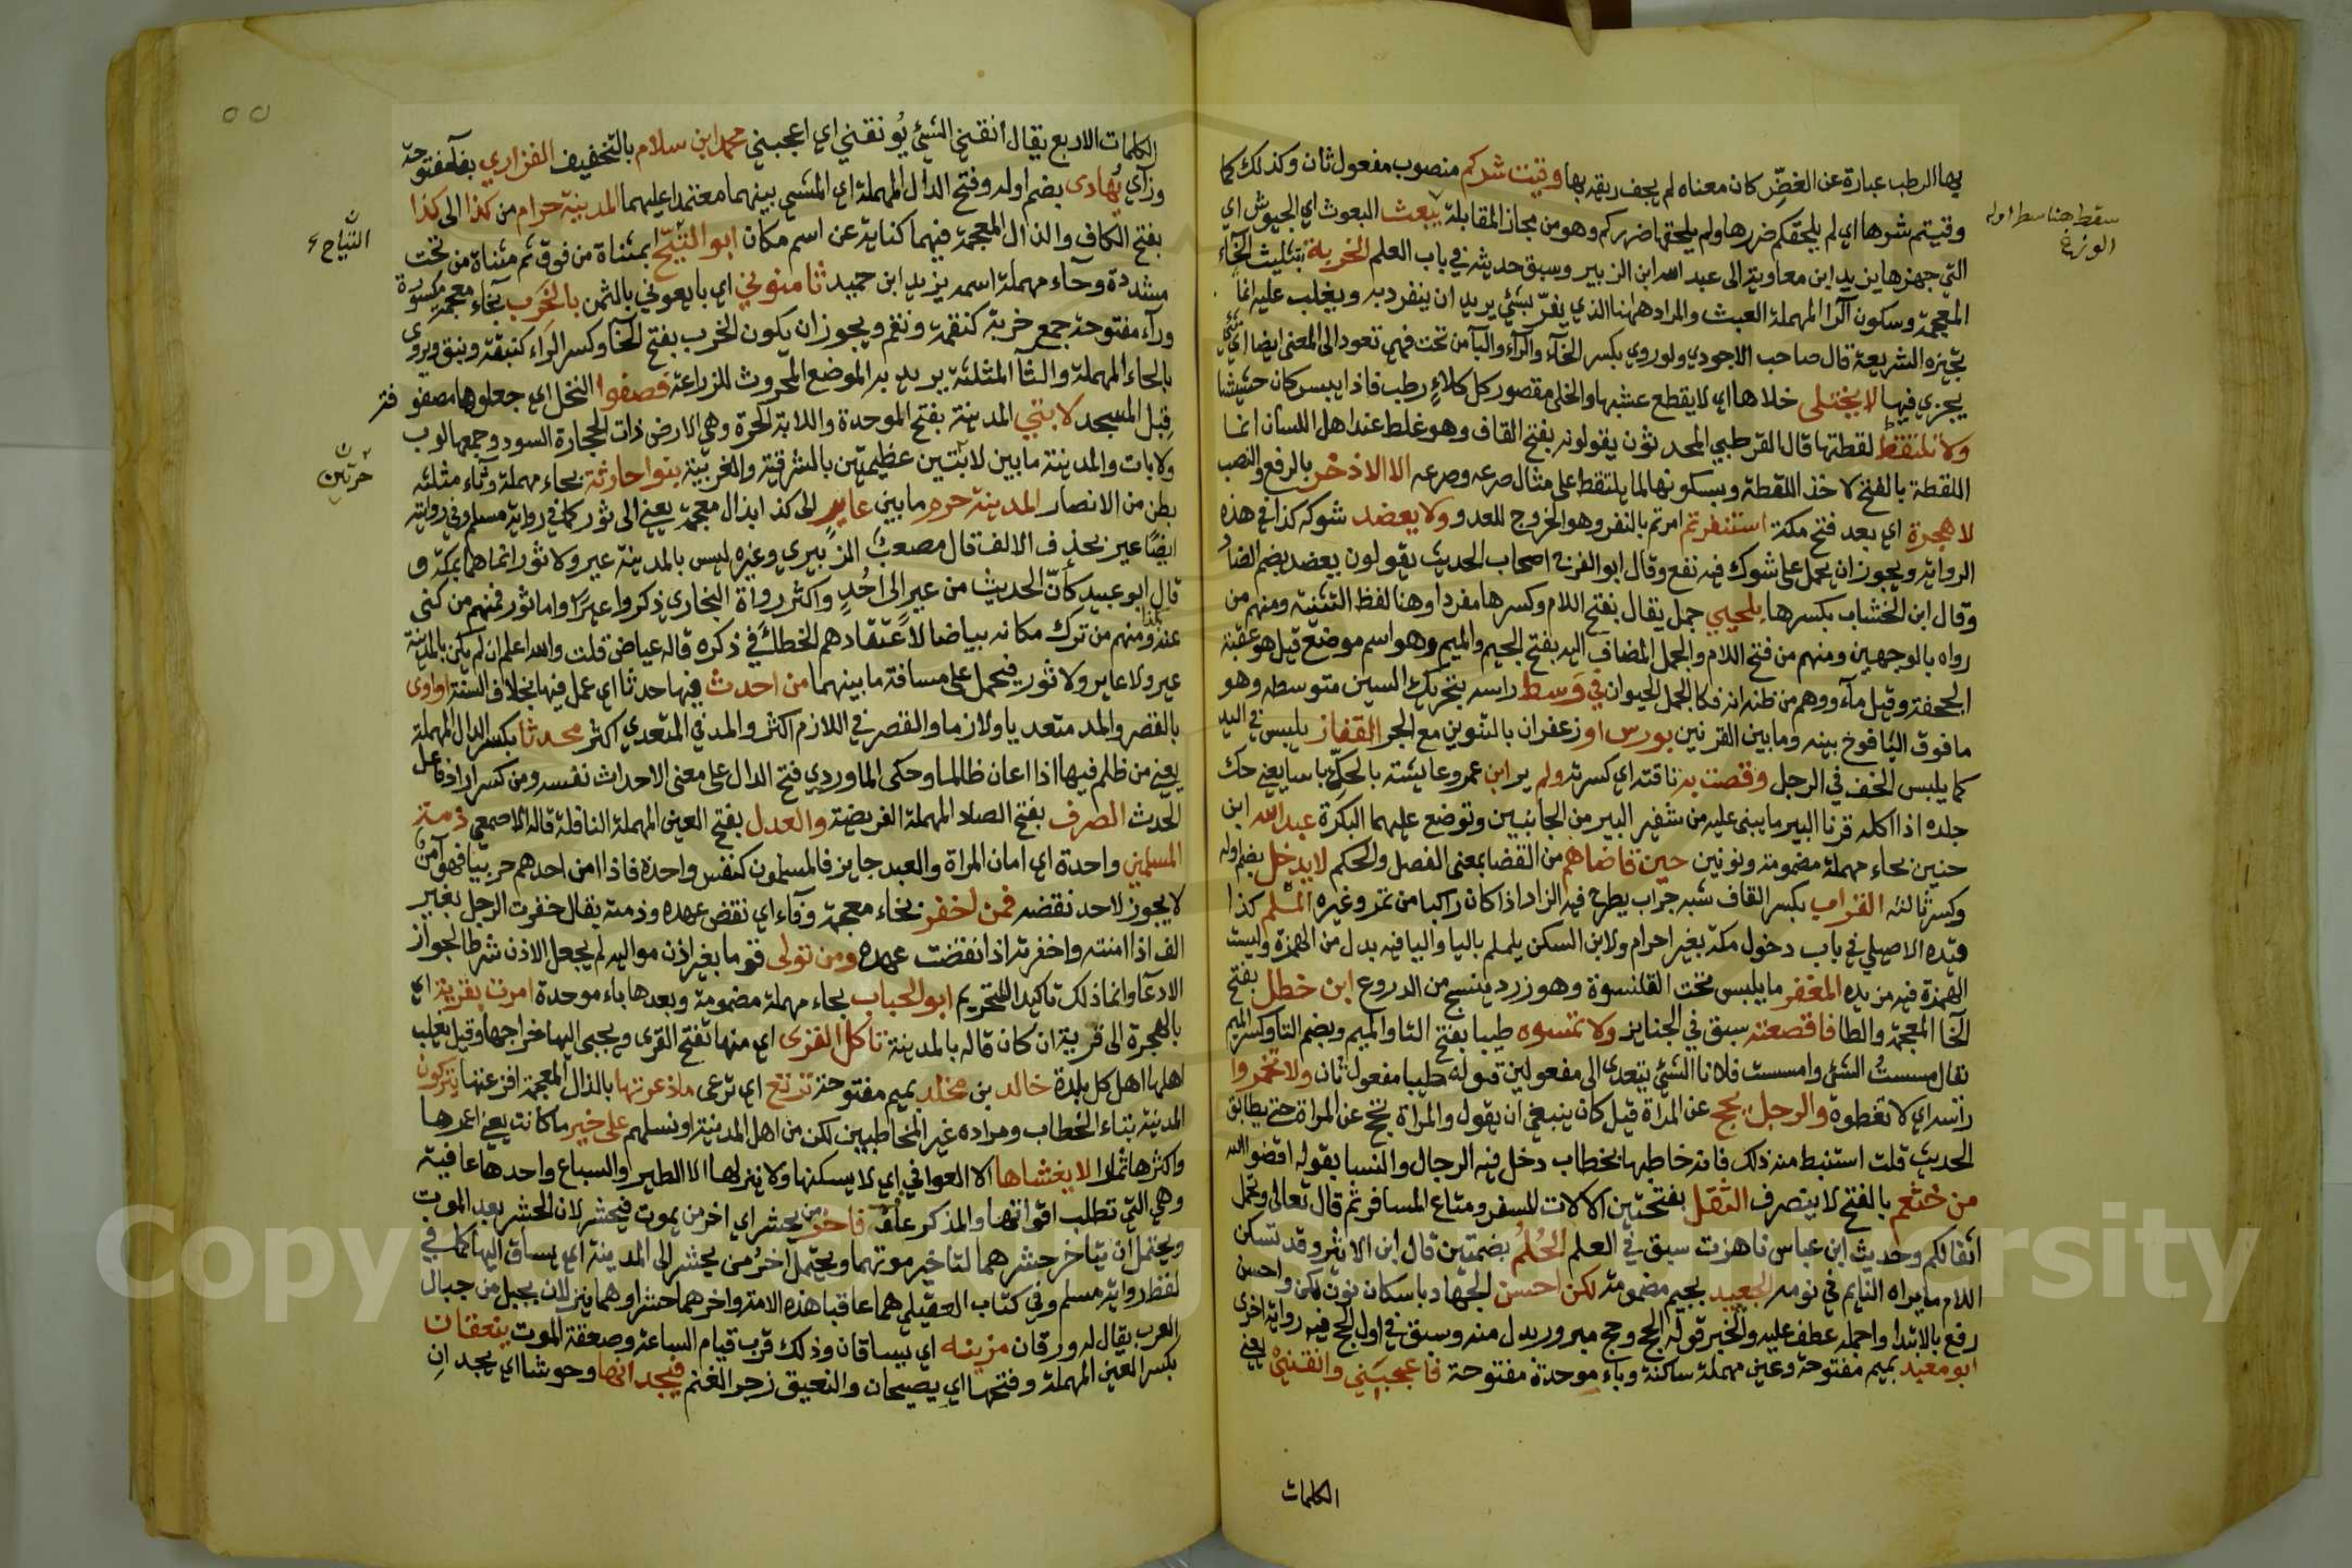 بها الرطب عبارة عن الغضِّ كان معناه لم يجف ريقه بها وقيت شركم منصوب مفعول ثان وكذلك كما
وقيتم شرها اي لم يلحقكم ضررها ولم يلحقها ضرركم وهو من مجاز المقابلة يبعث البعوث اي الجيوش اي
سقط هنا سطر اوله
الوزغ
التي جهزها يزيد ابن معاوية الى عبد الله ابن الزبير وسبق حديثه في باب العلم الخربة بتثليث الخاء
المعجمة وسكون الرا المهملة العبث والمراد هاهنا الذي يفر بشئ يريد ان ينفرد به ويغلب عليه انما
تجيزه الشريعة قال صاحب الاحوذي ولو روي بكسر الخاء والراء واليا من تحت فهي تعود الى المعنى ايضا اي شئ
يجزي فيها لا يختلى خلاها اي لا يقطع عشبها والخلى مقصور كل كلاءٍ رطب فاذا يبس كان حشيشا
ولا تلتقط لقطتها قال القرطبي المحدثون يقولونه بفتح القاف وهو غلط عند اهل اللسان انما
اللقطة بالفتح لاخذ اللقطة وبسكونها لما يلتقط على مثال صرعه وصرعه الا الاذخر بالرفع والنصب
لا هجرة اي بعد فتح مكة استنفرتم امرتم بالنفر وهو الخروج للعدو ولا يعضد شوكه كذا في هذه
الرواية ويجوز ان يحمل على شوك فيه نفع وقال ابو الفرج اصحاب الحديث يقولون يعضد بضم الضاد
وقال ابن الخشاب بكسرها بلحيي جمل يقال بفتح اللام وكسرها مفردا وهنا لفظ التثنية ومنهم من
رواه بالوجهين ومنهم من فتح اللام والجمل المضاف اليه بفتح الجيم والميم وهو اسم موضع قيل هو عقبة
الجحفة وقيل ماء ووهم من ظنه انه فكا الجمل الحيوان في وسط راسه بتحريك السين متوسطه وهو
ما فوق اليافوخ بينه وما بين القرنين بورس او زعفران بالتنوين مع الجر القفاز يلبس في اليد
كما يلبس الخف في الرجل وقصت به ناقته اي كسرته ولم ير ابن عمر وعايشة بالحكّ باسا يعني حك
جلده اذا اكله قرنا البير ما يبنى عليه من شفير البير من الجانبين وتوضع عليهما البكرة عبد الله ابن
حنين بحاء مهملة مضمومة ونونين حين قاضاهم من القضا بمعنى الفصل والحكم لا يدخل بضم اوله
وكسر ثالثه القراب بكسر القاف شبه جراب يطرح فيه الزاد اذا كان راكبا من تمر وغيره المْلم كذا
قيده الاصيلي في باب دخول مكة بغير احرام ولابن السكن يلملم باليا واليا فيه بدل من الهمزة وليست
الهمزة فيه مزيده المغفر ما يلبس تحت القلنسوة وهو زرد ينسج من الدروع ابن خطل بفتح
الخا المعجمة والطا فاقصعته سبق في الجنايز ولا تمسوه طيبا بفتح التا والميم وبضم التا وكسر الميم
يقال مسستُ الشئ وامسست فلانا الشئ يتعدى الى مفعولين قوله طيبا مفعول ثان ولا تخمروا
راسه اي لا تغطوه والرجل يحج عن المراة قيل كان ينبغي ان يقول والمراة تحج عن المراة حتى يطابق
الحديث قلت استنبط منه ذلك فانه خاطبها بخطاب دخل فيه الرجال والنسا بقوله اقضوا الله
من خثعم بالفتح لا ينصرف الثقل بفتحتين الالات للسفر ومتاع المسافر ثم قال تعالى وتحمل
اثقالكم وحديث ابن عباس ناهزت سبق في العلم الحُلُمُ بضمتين قال ابن الاثير وقد تسكن
اللام ما يراه النايم في نومه الجعيد بجيم مضمومة لكن احسن الجهاد باسكان نون لكن واحسن
رفع بالابتدا واجمله عطف عليه والخبر قوله الحج وحج مبرور بدل منه وسبق في اول الحج فيه رواية اخرى
ابو معبد بميم مفتوحة وعين مهملة ساكنة وباء موحدة مفتوحة فاعجبَني وانقنني يعني
الكلمات
٥٥
الكلمات الاربع يقال انقني الشئ يُونقني اي اعجبني محمد ابن سلام بالتخفيف الفزاري بفاء مفتوحة
وزآي يُهادى بضم اوله وفتح الدال المهملة اي المشي بينهما معتمدا عليهما المدينة حرام من كذا الى كذا
بفتح الكاف والذال المعجمة فيهما كناية عن اسم مكان ابو التيّح ابمثناة من فوق ثم مثناة من تحت
التياح
مشددة وحاء مهملة اسمه يزيد ابن حميد ثامنوني اي بايعوني بالثمن بالخرب بخاء معجمة مكسورة
وراء مفتوحة جمع خربة كنقمة ونقم ويجوز ان يكون الخرب بفتح الخا وكسر الراء كنبقة ونبق ويروى
بالحاء المهملة والثا المثلثة يريد به الموضع المحروث للزراعة فصفوا النخل اي جعلوها مصفو فة
قِبل المسجد لابتي المدينة بفتح الموحدة واللابة الحرة وهي الارض ذات الحجارة السود وجمعها لوب
ولابات والمدينة ما بين لابتين عظيمتين بالشرقية والغربية بنوا حارثة بحاء مهملة وثاء مثلثة
حرتين
بطن من الانصار المدينة حرم ما بين عاير الى كذا بذال معجمة يعني الى ثور كما في رواية مسلم وفي رواية
ايضا عير بحذف الالف قال مصعب الزبيري وغيره ليس بالمدينة عير ولا ثور انما هما بمكة و
قال ابو عبيد كأنّ الحديث من عيرٍ الى احُدٍ واكثر رواة البخاري ذكروا عيرًا واما ثور فمنهم من كنى
عنه ومنهم من ترك مكانه بياضا لاعتقادهم الخطأ في ذكره قاله عياض قلت والله اعلم ان لم يكن بالمدينة
عير ولا عاير ولا ثور فيحمل على مسافة ما بينهما من احدث فيها حدثا اي عمل فيها بخلاف السنة او اوى
بالقصر والمد متعديا ولازما والقصر في اللازم اكثر والمد في المتعدي اكثر محدثا بكسر الدال المهملة
يعني من ظلم فيها اذا اعان ظالما وحكى الماوردي فتح الدال على معنى الاحداث نفسه ومن كسر اراد فاعل
الحدث الصرف بفتح الصاد المهملة الفريضة والعدل بفتح العين المهملة النافلة قاله الاصمعي ذمة
المسلمين واحدة اي امان المراة والعبد جايز فالمسلمون كنفس واحدة فاذا امن احدهم حربيا فهو آمن
لا يجوز لاحد نقضه فمن اخفر بخاء معجمة وفاء اي نقض عهده وذمته يقال خفرت الرجل بغير
الف اذا امنته واخفرته اذا نقضت عهده ومن تولى قوما بغير اذن مواليه لم يجعل الاذن شرطا لجواز
الادعاء وانما ذلك تاكيدا للتحريم ابو الحباب بحاء مهملة مضمومة وبعدها باء موحدة امرت بقرية اي
بالهجرة الى قرية ان كان قاله بالمدينة تاكل القرى اي منها تفتح القرى ويجبى اليها خراجها وقيل يغلب
اهلها اهل كل بلدة خالد بن مخلد بميم مفتوحة ترتع اي ترعى ماذعرتها بالذال المعجمة افزعتها يتركون
المدينة بتاء الخطاب ومراده غير المخاطبين لكن من اهل المدينة او نسلهم على خير ما كانت يعني اعمرها
واكثرها ثمارا لا يغشاها الا العوافي اي لا يسكنها ولا ينزلها الا الطير والسباع واحدها عافية
وهي التي تطلب اقواتها والمذكر عافٍ فاخر من يحشر اي اخر من يموت فيحشر لان الحشر بعد الموت
ويحتمل ان يتاخر حشرهما لتاخير موتهما ويحتمل آخرُ من يحشر الى المدينة اي يساق اليها كما في
لفظ رواية مسلم وفي كتاب العقيلي هما عاقبا هذه الامة واخرهما حشرا وهما ينزلان بجبل من جبال
العرب يقال له ورقان مزينة اي يساقان وذلك قرب قيام الساعة وصعقة الموت ينعقان
بكسر العين المهملة وفتحها اي يصيحان والنعيق زجر الغنم فيجدانها وحوشا اي يجدانِ
Copy
ersity